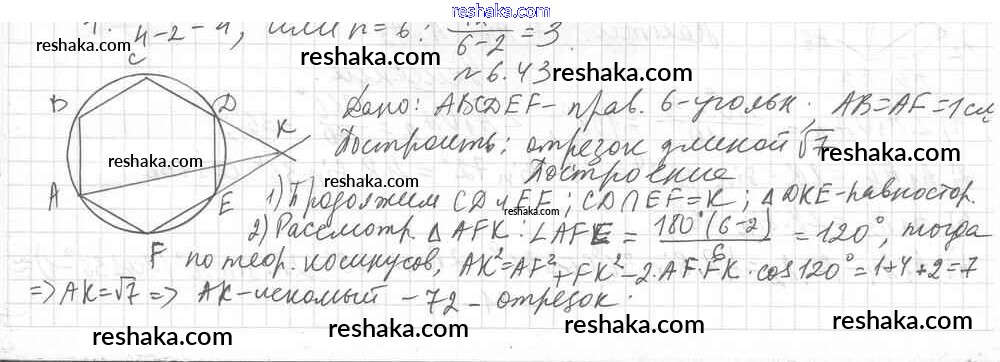 www.reshaka.com
4-2=4, или n=6: 6-2 = 3.
reshaka.com
N 6.43 reshaka.com
C
B D K
A E
F
reshaka.com
Дано: ABCDEF - прав. 6-угольн., AB=AF=1см
Построить: отрезок длиной √7
reshaka.com Построение
1) Продолжим CD и EF; CD∩EF=K; △DKE-равностор.
reshaka.com
2) Рассмотр. △AFK: ∠AFE = 180°(6-2) / 6 = 120°, тогда
по теор. косинусов, AK²=AF²+FK²-2·AF·FK·cos120°=1+4+2=7
=> AK=√7 => AK-искомый - отрезок.
reshaka.com reshaka.com reshaka.com reshaka.com